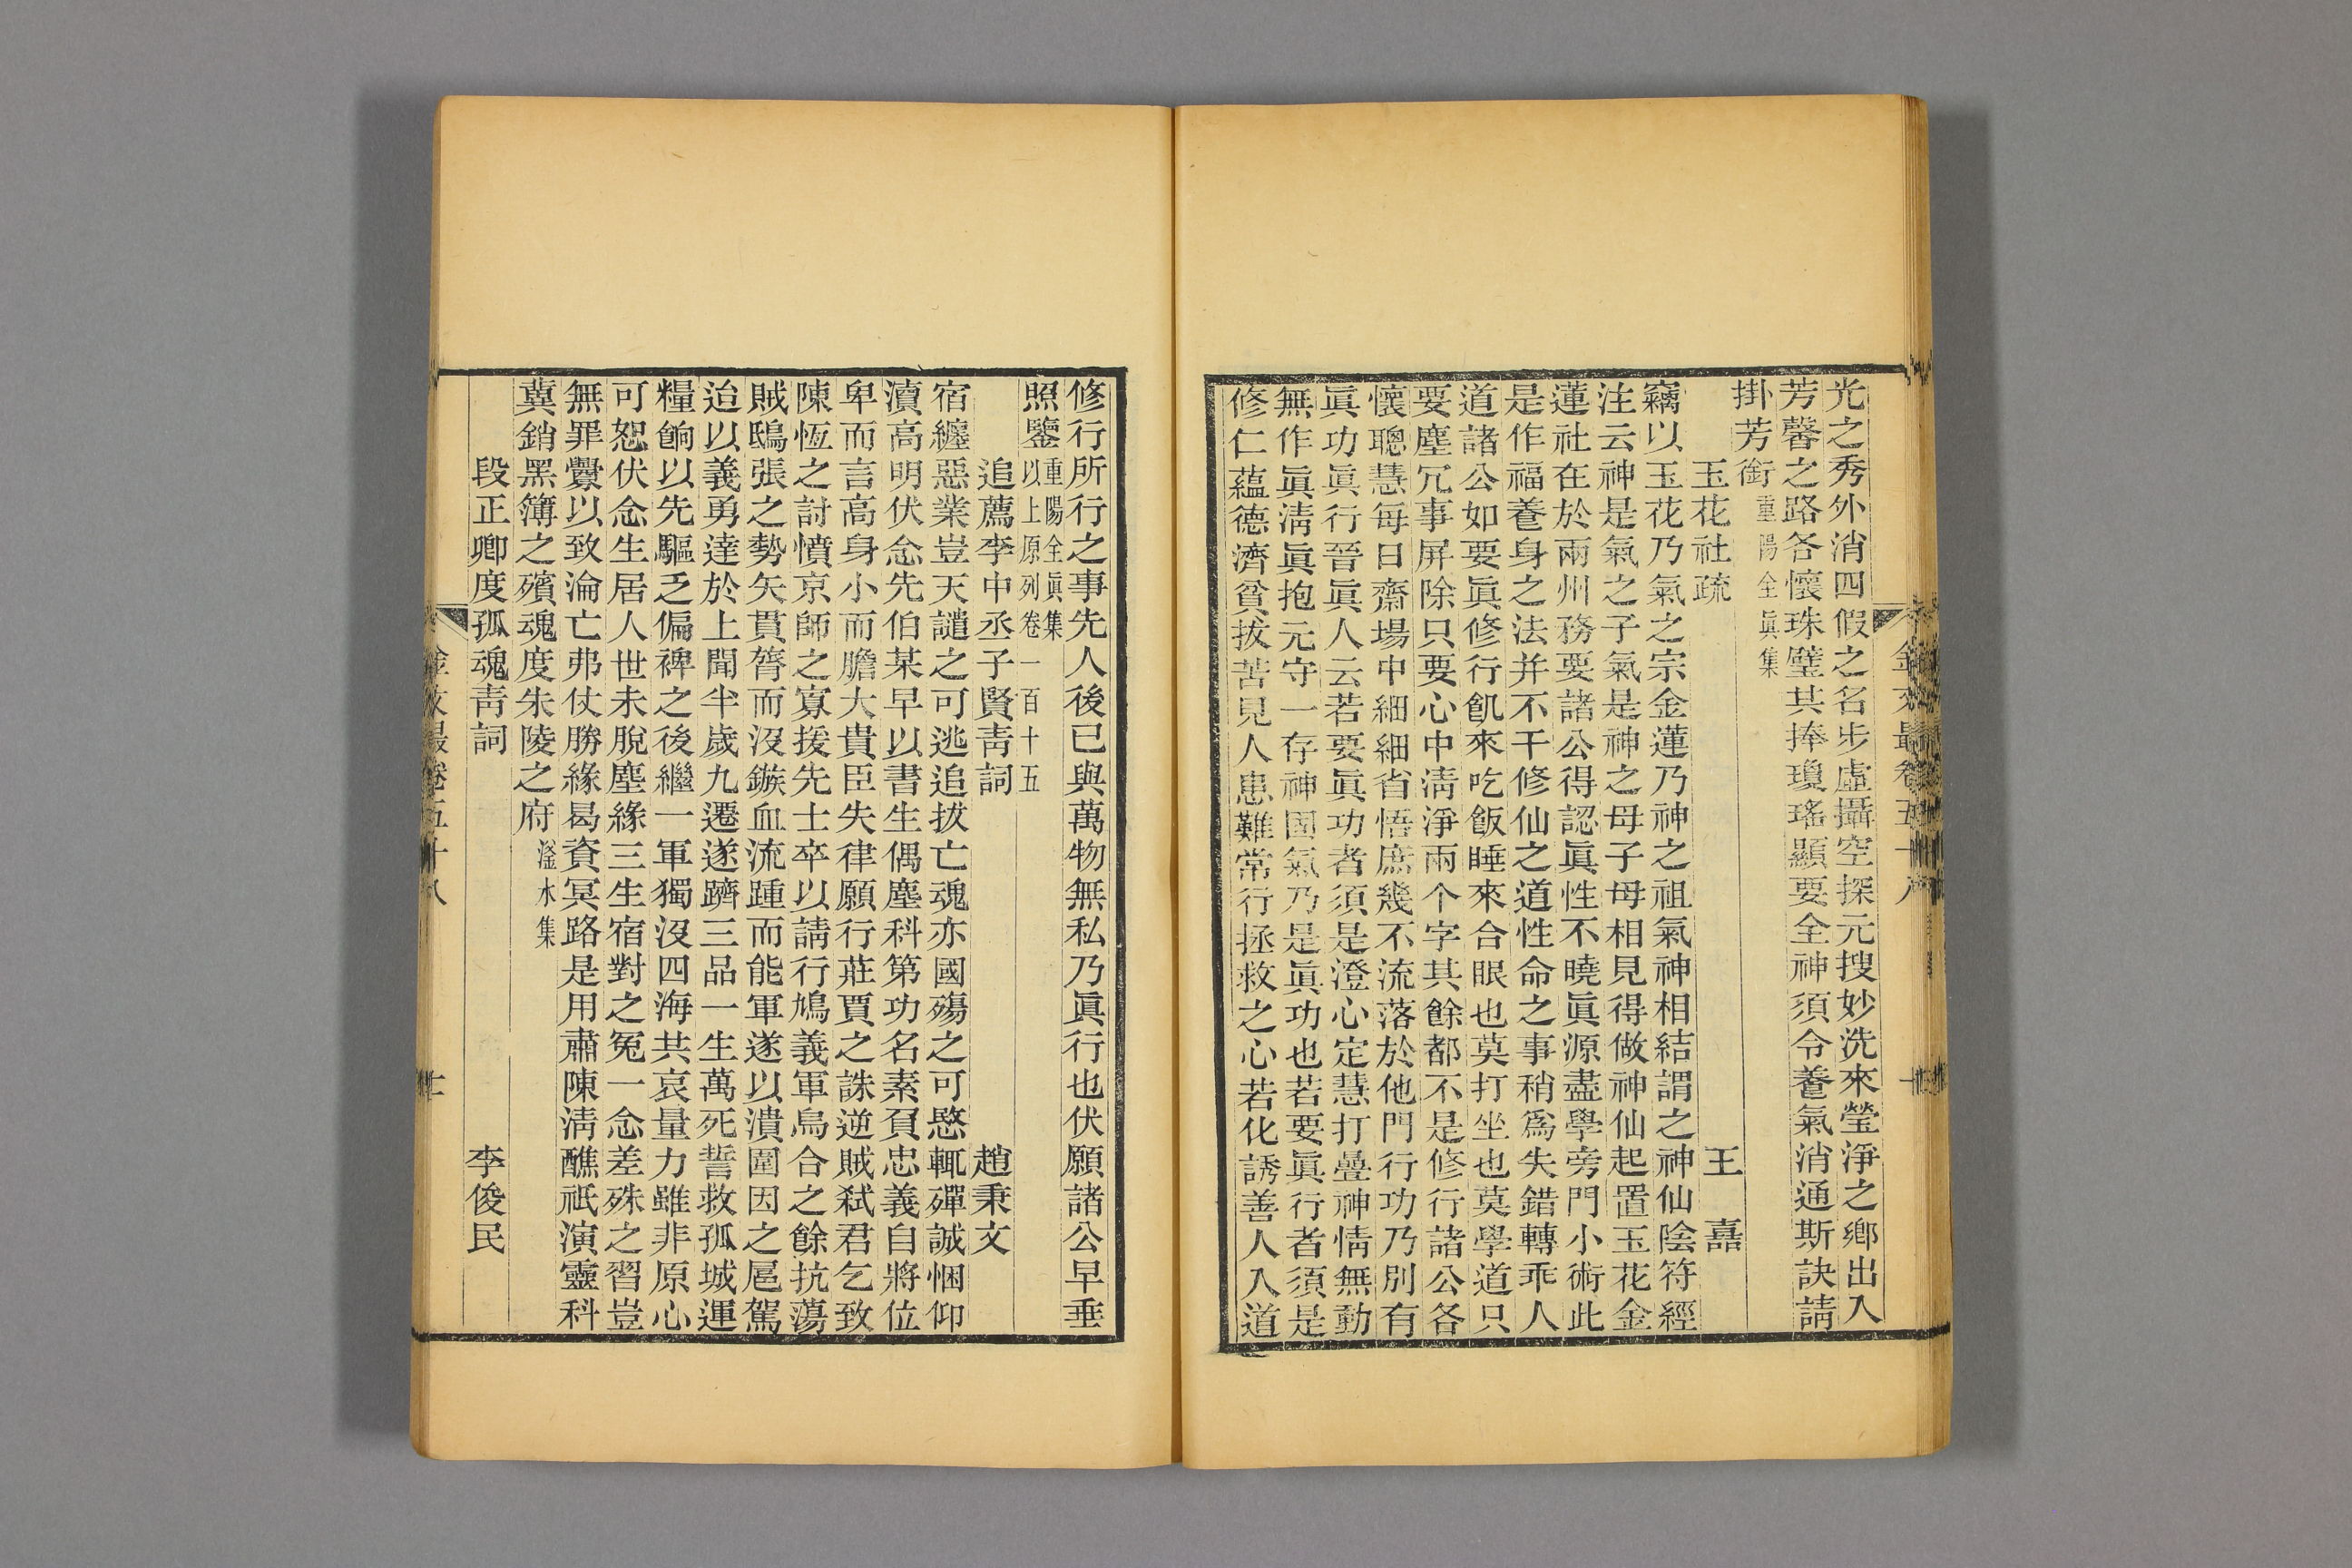 光之秀外消四假之名步虛攝空探元搜妙洗來瑩淨之鄉出入
芳馨之路各懷珠璧其捧瓊瑤顯要全神須令養氣消通斯訣請
掛芳銜重陽全眞集
玉花社疏 王嚞
竊以玉花乃氣之宗金蓮乃神之祖氣神相結謂之神仙陰符經
注云神是氣之子氣是神之母子母相見得做神仙起置玉花金
蓮社在於兩州務要諸公得認眞性不曉眞源盡學旁門小術此
是作福養身之法并不干修仙之道性命之事稍爲失錯轉乖人
道諸公如要眞修行飢來吃飯睡來合眼也莫打坐也莫學道只
要塵冗事屏除只要心中淸淨兩个字其餘都不是修行諸公各
懷聰慧每日齋場中細細省悟庶幾不流落於他門行功乃別有
眞功眞行晉眞人云若要眞功者須是澄心定慧打疊神情無動
無作眞淸眞抱元守一存神固氣乃是眞功也若要眞行者須是
修仁蘊德濟貧拔苦見人患難常行拯救之心若化誘善人入道
修行所行之事先人後已與萬物無私乃眞行也伏願諸公早垂
照鑒重陽全眞集以上原列卷一百十五
追薦李中丞子賢靑詞 趙秉文
宿纏惡業豈天譴之可逃追拔亡魂亦國殤之可愍輒殫誠悃仰
瀆高明伏念先伯某早以書生偶塵科第功名素負忠義自將位
卑而言高身小而膽大貴臣失律願行莊賈之誅逆賊弒君乞致
陳恆之討憤京師之寡援先士卒以請行鳩義軍烏合之餘抗蕩
賊鴟張之勢矢貫膂而沒鏃血流踵而能軍遂以潰圍因之扈駕
迨以義勇達於上聞半歲九遷遂躋三品一生萬死誓救孤城運
糧餉以先驅乏偏裨之後繼一軍獨沒四海共哀量力雖非原心
可恕伏念生居人世未脫塵緣三生宿對之冤一念差殊之習豈
無罪釁以致淪亡弗仗勝緣曷資冥路是用肅陳淸醮祇演靈科
冀銷黑簿之殯魂度朱陵之府滏水集
段正卿度孤魂靑詞 李俊民
金文最卷五十八